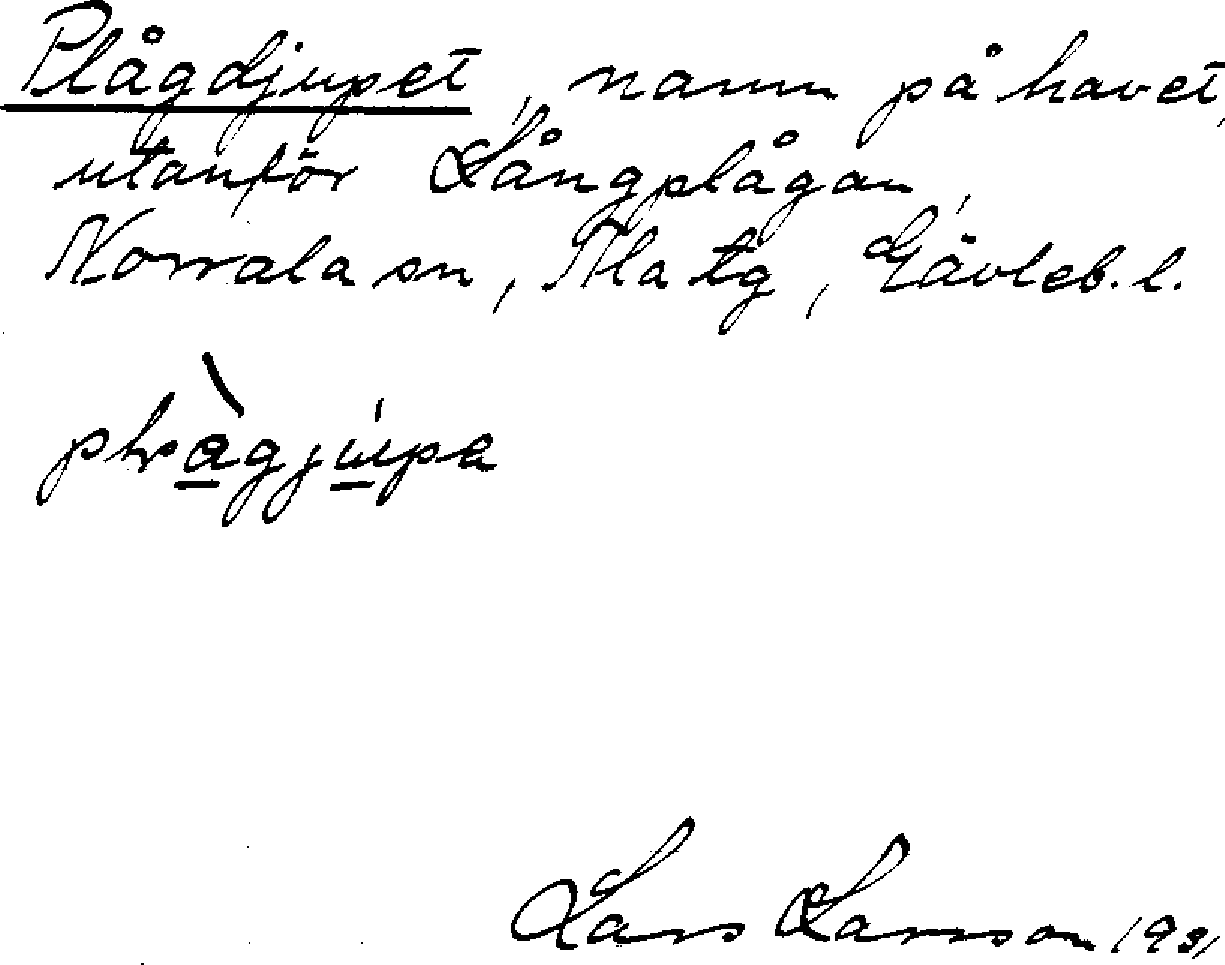 Plågdjupet, namn på havet
utanför Långplågan,
Norrala sn, Ala tg, Gävleb. l.
Lars Larsson 1931